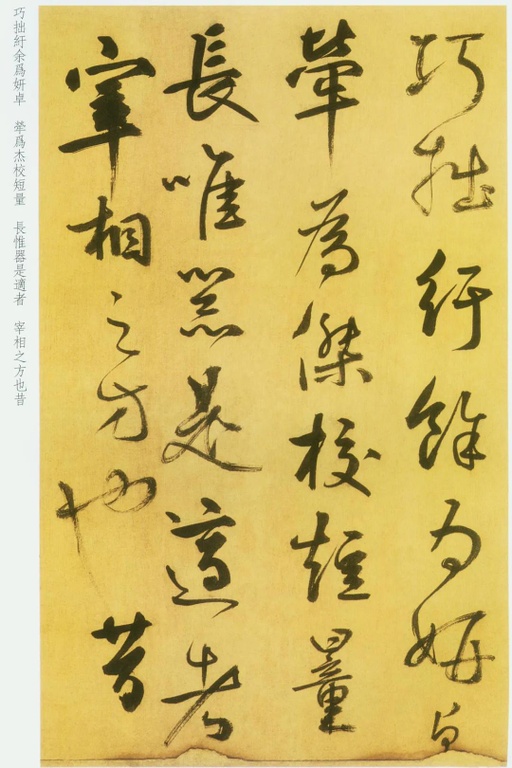 巧拙紆餘為妍卓
犖為傑校短量
長唯器是適者
宰相之方也昔
巧拙紆余爲妍卓　犖爲杰校短量　長惟器是適者　宰相之方也昔